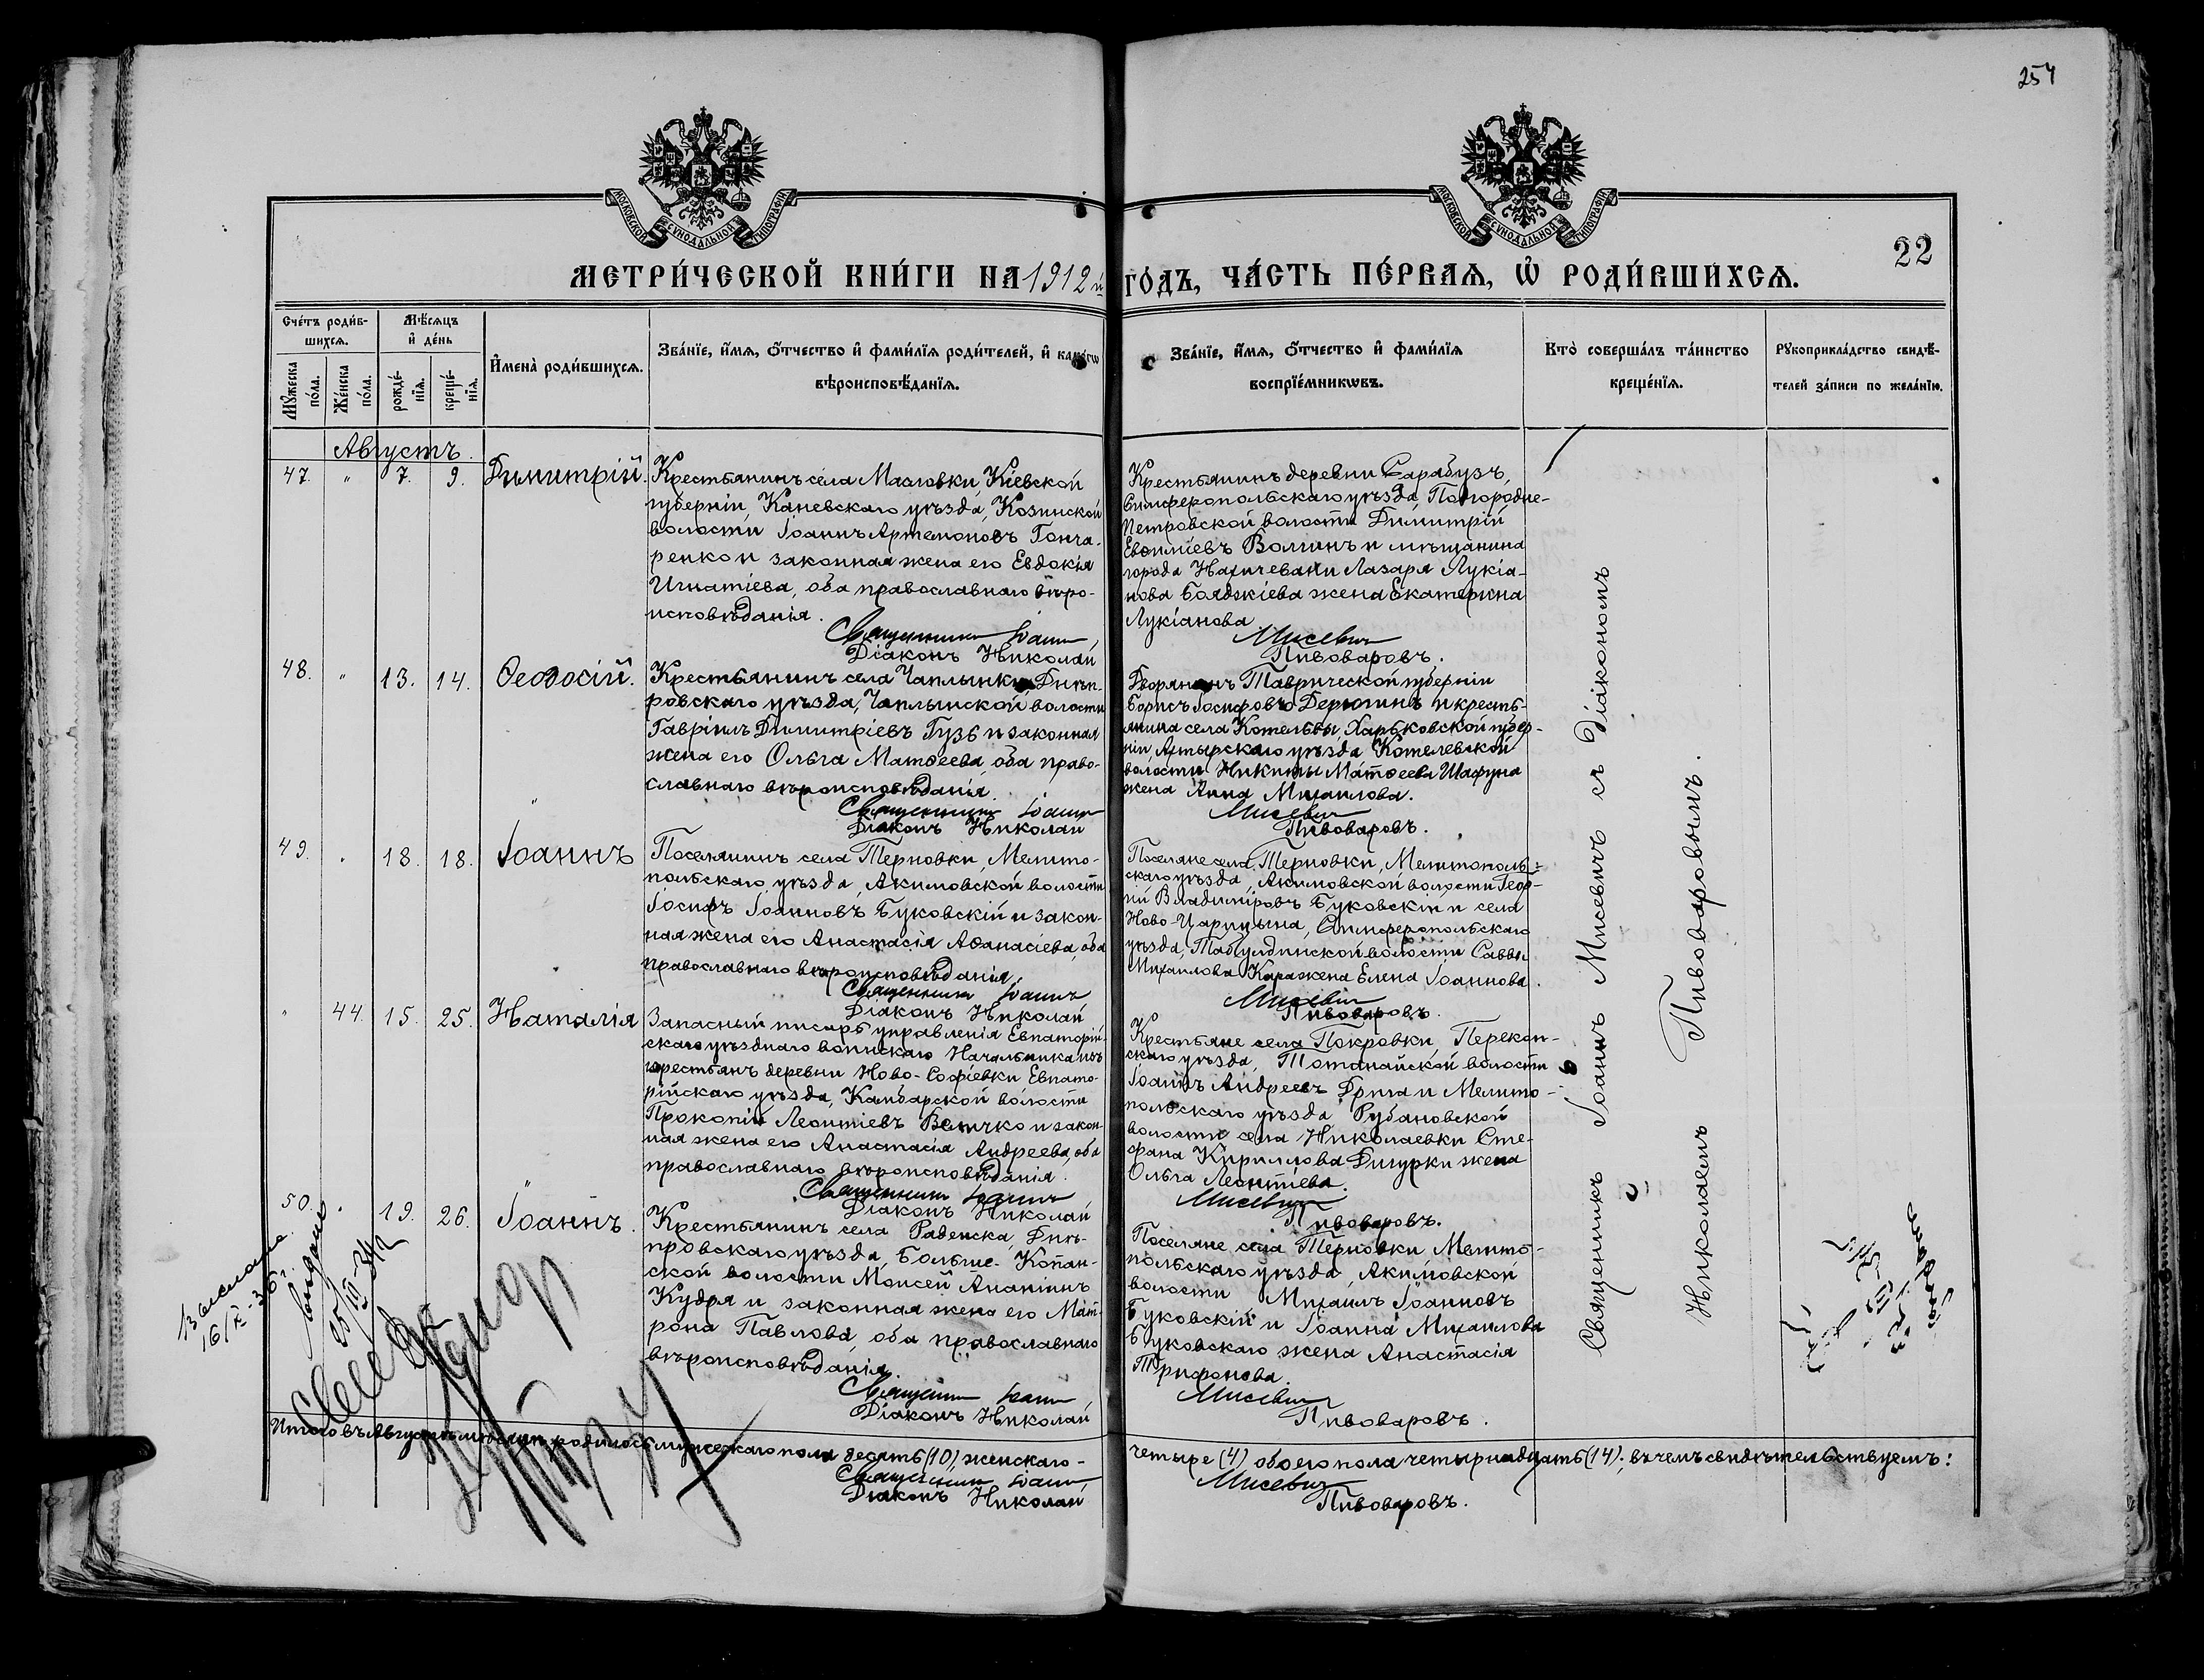 254
МОСКОВСКОЙ СѴНОДАЛЬНОЙ ТИПОГРАФІИ
МОСКОВСКОЙ СѴНОДАЛЬНОЙ ТИПОГРАФІИ
22
МЕТРИ́ЧЕСКОЙ КНИ́ГИ НА 1912 й ГО́ДЪ, ЧА́СТЬ ПЕ́РВАЯ, Ѡ҆ РОДИ́ВШИХСЯ.
Сче́тъ роди́в-
шихся.
Мѣ́сяцъ
и҆ де́нь
Мꙋ́жеска по́ла.
Же́нска по́ла.
рожде́-
нїя.
креще́-
нїя.
И҆мена̀ роди́вшихся.
Зва́нїе, и҆́мя, ѻ҆́тчество и҆ фами́лїя роди́телей, и҆ како́гѡ
вѣроисповѣ́данїя.
Зва́нїе, и҆́мя, ѻ҆́тчество и҆ фами́лїя
воспрїе́мникѡвъ.
Кто̀ соверша́лъ та́инство
креще́нїя.
Рꙋкоприкла́дство свидѣ́-
телей за́писи по жела́нїю.
Августъ.
47. " 7. 9. Димитрій.
Крестьянинъ села Масловки, Кіевской
губерніи, Каневскаго уѣзда, Козинской
волости Іоаннъ Артемоновъ Гонча-
ренко и законная жена его Евдокія
Игнатіева, оба православнаго вѣро-
исповѣданія.
Священникъ Іоаннъ
Діаконъ Николай
Крестьянинъ деревни Сарабузъ,
Симферопольскаго уѣзда, Подгородне-
Петровской волости Димитрій
Евѳиміевъ Волгинъ и мѣщанина
города Нахичевани Лазаря Лукіа-
нова Бояджіева жена Екатерина
Лукіанова
Мисевичъ
Пивоваровъ.
48. " 13. 14. Ѳеодосій.
Крестьянинъ села Чаплынки, Днѣп-
ровскаго уѣзда, Чаплынской волости
Гавріилъ Димитріевъ Гузь и законная
жена его Ольга Матѳеева, оба право-
славнаго вѣроисповѣданія.
Священникъ Іоаннъ
Діаконъ Николай
Дворянинъ Таврической губерніи
Борисъ Іосифовъ Дерюгинъ и кресть-
янина села Котельвы, Харьковской губер-
ніи Ахтырскаго уѣзда Котелевской
волости Никиты Матѳеева Шафуна
жена Анна Михаилова.
Мисевичъ
Пивоваровъ.
49. " 18. 18. Іоаннъ
Поселянинъ села Терновки, Мелито-
польскаго уѣзда, Акимовской волости
Іосифъ Іоанновъ Буковскій и закон-
ная жена его Анастасія Аѳанасіева, оба
православнаго вѣроисповѣданія.
Священникъ Іоаннъ
Діаконъ Николай
Поселяне села Терновки, Мелитополь-
скаго уѣзда, Акимовской волости Геор-
гій Владиміровъ Буковскій и села
Ново-Царицына, Симферопольскаго
уѣзда, Табулдинской волости Саввы
Михаилова Кара жена Елена Іоаннова.
Мисевичъ
Пивоваровъ.
" 44. 15. 25. Наталія
Запасный писарь управленія Евпаторій-
скаго уѣзднаго воинскаго Начальника изъ
крестьянъ деревни Ново-Софіевки Евпато-
рійскаго уѣзда, Камбарской волости
Прокопій Леонтіевъ Величко и закон-
ная жена его Анастасія Андреева, оба
православнаго вѣроисповѣданія.
Священникъ Іоаннъ
Діаконъ Николай
Крестьяне села Покровки Перекоп-
скаго уѣзда, Тотанайской волости
Іоаннъ Андреевъ Грига и Мелито-
польскаго уѣзда Рубановской
волости села Николаевки Сте-
фана Кириллова Дигурки жена
Ольга Леонтіева.
Мисевичъ
Пивоваровъ.
50. " 19. 26. Іоаннъ.
Крестьянинъ села Раденска, Днѣ-
провскаго уѣзда, Больше-Копан-
ской волости Моисей Ананіинъ
Кудря и законная жена его Мат-
рона Павлова, оба православнаго
вѣроисповѣданія.
Священникъ Іоаннъ
Діаконъ Николай
Поселяне села Терновки Мелито-
польскаго уѣзда, Акимовской
волости Михаилъ Іоанновъ
Буковскій и Іоанна Михаилова
Буковскаго жена Анастасія
Трифонова.
Мисевичъ
Пивоваровъ.
Священникъ Іоаннъ Мисевичъ съ діакономъ
Николаемъ Пивоваровымъ.
16/X-36
выдано
Итого въ Августѣ мѣсяцѣ родилось мужескаго пола десять (10), женскаго - четыре (4) обоего пола четырнадцать (14); въ чемъ свидѣтельствуемъ:
Священникъ Іоаннъ Мисевичъ
Діаконъ Николай Пивоваровъ.